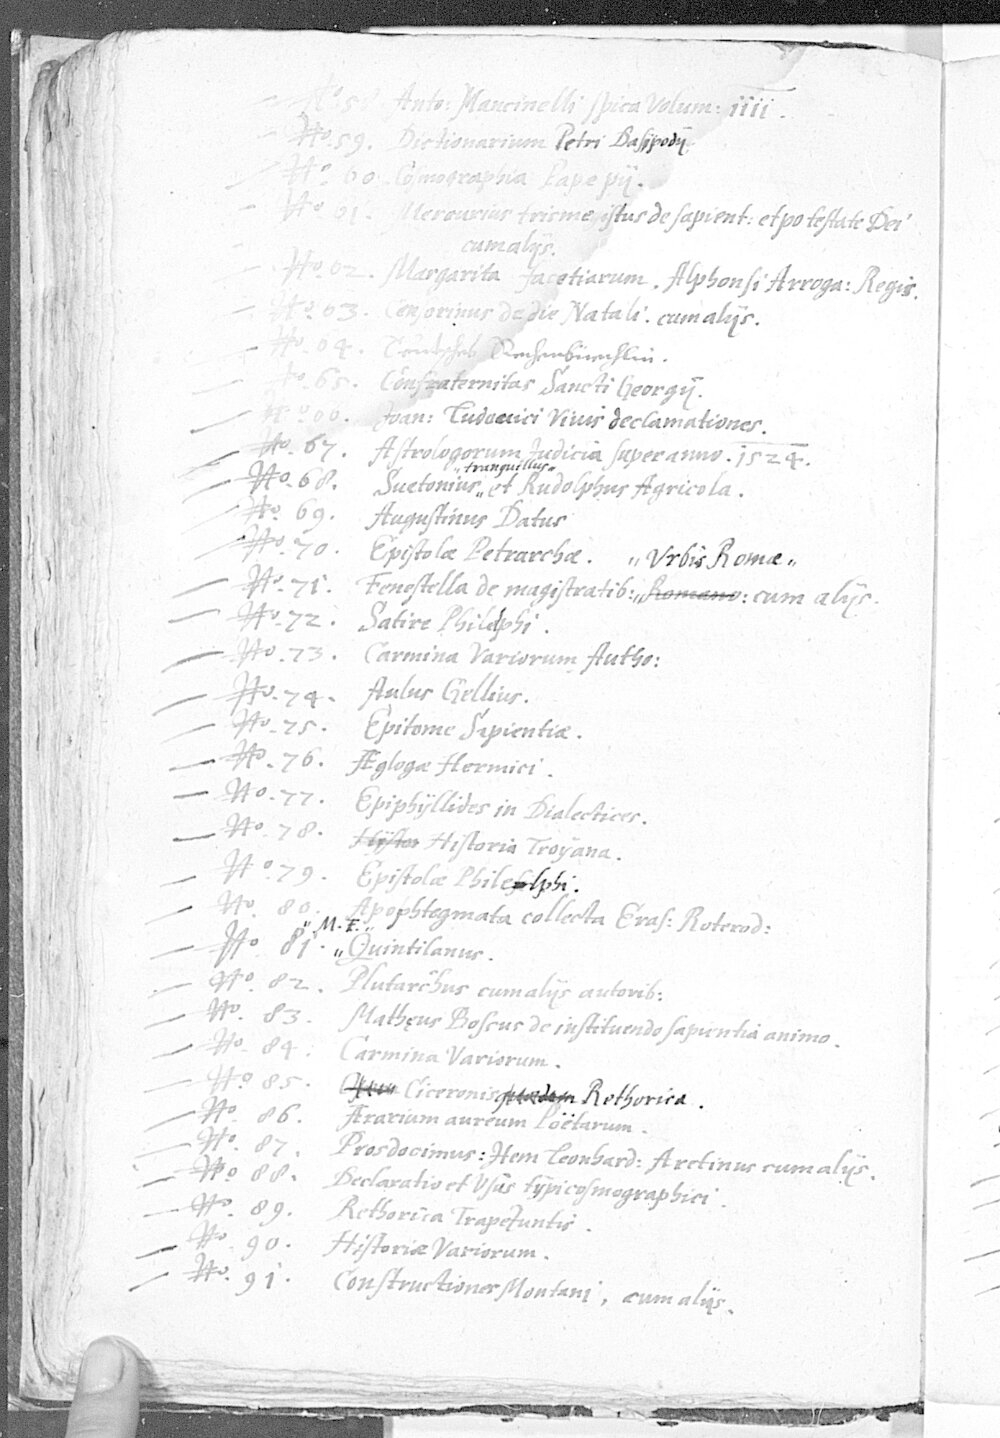 No. 58. Anto: Mancinelli spica Volum: iiii.
No. 59. Dictionarium Petri Dasipodÿ
No. 60 Cosmographia Pape pÿ.
No. 61. Mercurius trismegistus de sapient: et potestate Dei
cum alÿs.
No. 62. Margarita facetiarum. Alphonsi Arroga: Regis.
No. 63. Censorinus de die Natali. cum alÿs.
No. 64. Rechenbüechlin.
No. 65. Confraternitas Sancti Georgÿ.
No. 66. Joan: Ludouici Viuis declamationes.
No. 67. Astrologorum Judicia super anno. 1524.
„tranquillus„
No. 68. Suetonius „ et Rudolphus Agricola.
No. 69. Augustinus Datus
No. 70. Epistolæ Petrarchæ. „Vrbis Romæ„
No. 71. Fenestella de magistratib: „Romano: cum alÿs.
No. 72. Satire Philelphi.
No. 73. Carmina Variorum Autho:
No. 74. Aulus Gellius.
No. 75. Epitome Sapientiæ.
No. 76. Æglogæ Hermici.
No. 77. Epiphÿllides in Dialectices.
No. 78. Hÿstor Historia Troÿana.
No. 79. Epistolæ Philelphi.
No. 80. Apophtegmata collecta Eras: Roterod:
„M. F.„
No. 81. „Quintilanus.
No. 82. Plutarchus cum alÿs autorib:
No. 83. Matheus Boscus de instituendo sapientia animo.
No. 84. Carmina Variorum.
No. 85. Ciceronis quædam Rethorica.
No. 86. Ærarium aureum Poëtarum.
No. 87. Prosdocimus: Item Leonhard: Aretinus cum alÿs.
No. 88. Declaratio et Vsus tÿpi cosmographici.
No. 89. Rethorica Trapezuntis.
No. 90. Historiæ Variorum.
No. 91. Constructiones Montani, cum alÿs.